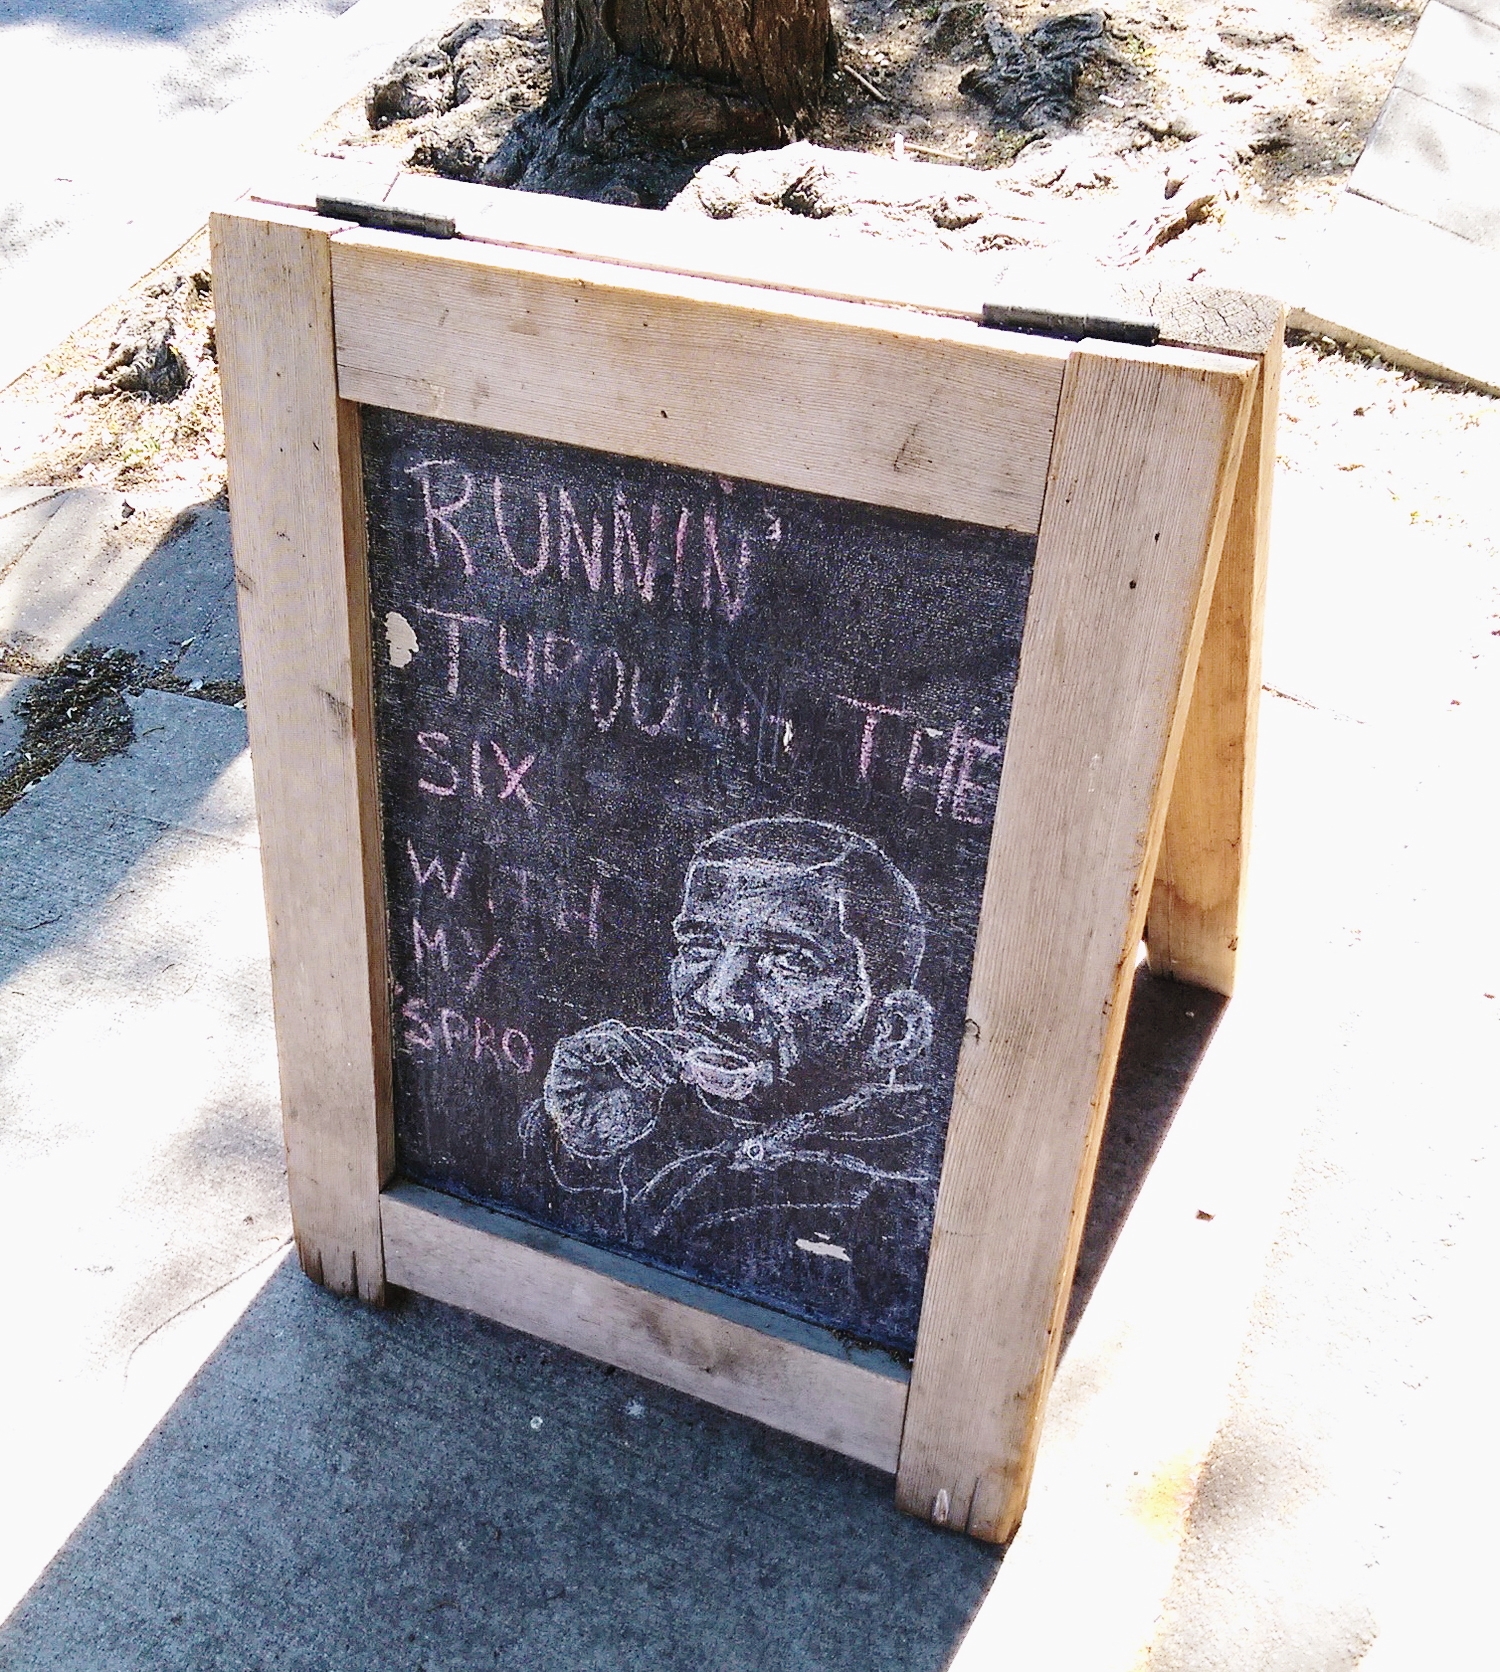 RUNNIN'
THE
SIX
WITH
MY
'SPRO